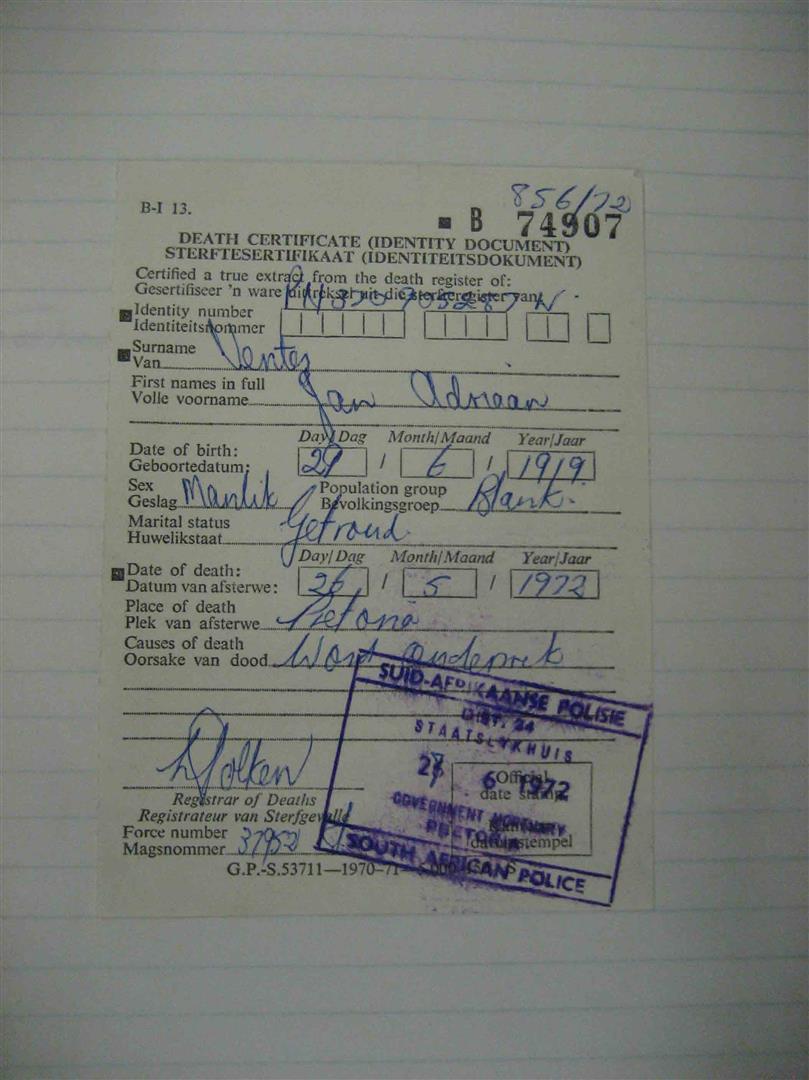 856/72
B-I 13.
B 74907
DEATH CERTIFICATE (IDENTITY DOCUMENT)
STERFTESERTIFIKAAT (IDENTITEITSDOKUMENT)
Certified a true extract from the death register of:
Gesertifiseer 'n ware uittreksel uit die sterfteregister van:
Identity number
Identiteitsnommer
Surname
Van Venter
First names in full
Volle voorname Jan Adriaan
Day/Dag Month/Maand Year/Jaar
Date of birth:
Geboortedatum: 29 / 6 / 1919
Sex Population group
Geslag Manlik Bevolkingsgroep Blank.
Marital status
Huwelikstaat Getroud.
Day/Dag Month/Maand Year/Jaar
Date of death:
Datum van afsterwe: 26 / 5 / 1972
Place of death
Plek van afsterwe Pretoria
Causes of death
Oorsake van dood Word ondersoek
SUID-AFRIKAANSE POLISIE
DIST. 24
STAATSLYKHUIS
6 1972
Official
date stamp
GOVERNMENT MORTUARY
PRETORIA
datumstempel
SOUTH AFRICAN POLICE
Registrar of Deaths
Registrateur van Sterfgevalle
Force number
Magsnommer 37952
G.P.-S.53711—1970-71—